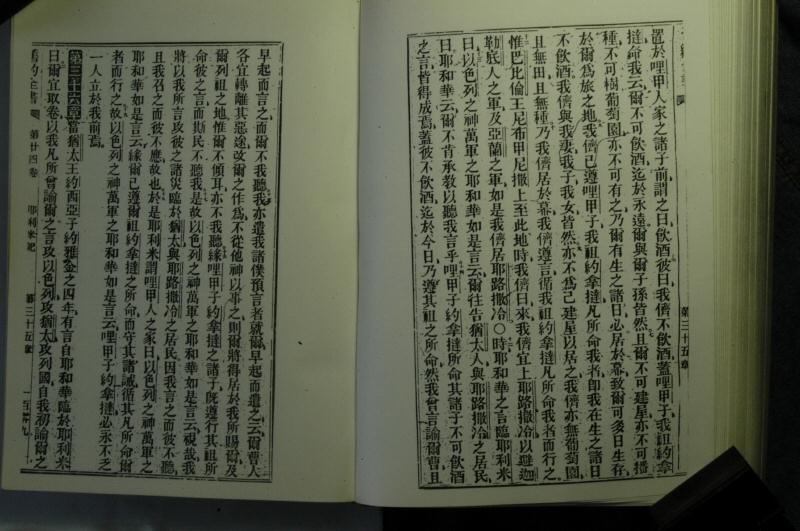 置於哩甲人家之諸子前謂之曰飲酒彼曰我儕不飲酒蓋哩甲子我祖約拿
撻命我云爾不可飲酒迄於永遠爾與爾子孫皆然且爾不可建屋亦不可播
種不可樹葡萄園亦不可有之乃爾有生之諸日必居於幕致爾可多日生存
於爾爲旅之地我儕已遵哩甲子我祖約拿撻凡所命我者卽我在生之諸日
不飲酒我儕與我妻我子我女皆然亦不爲己建屋以居之我儕亦無葡萄園
且無田且無種乃我儕居於幕我儕遵言循我祖約拿撻凡所命我者而行之
惟巴比倫王尼布甲尼撒上至此地時我儕曰來我儕宜上耶路撒冷以避迦
勒底人之軍及亞蘭之軍如是我儕居耶路撒冷○時耶和華之言臨耶利米
曰以色列之神萬軍之耶和華如是言云爾往告猶太人與耶路撒冷之居民
曰耶和華云爾不肯承敎以聽我言乎哩甲子約拿撻所命其諸子不可飲酒
之言皆得成焉蓋彼不飲酒迄於今日乃遵其祖之所命然我曾言諭爾曹且
第三十五章
早起而言之而爾不我聽我亦遣我諸僕預言者就爾早起而遣之云爾曹人
各宜轉離其惡途改爾之作爲不從他神以事之則爾將得居於我所賜爾及
爾列祖之地惟爾不傾耳亦不我聽緣哩甲子約拿撻之諸子旣遵行其祖所
命彼之言而斯民不聽我是故以色列之神萬軍之耶和華如是言云視哉我
將以我所言攻彼之諸災臨於猶太與耶路撒冷之居民因我言之而彼不聽
且我召之而彼不應故也於是耶利米謂哩甲人之家曰以色列之神萬軍之
耶和華如是言云緣爾已遵爾祖約拿撻之所命而守其諸誡循其凡所命爾
者而行之故以色列之神萬軍之耶和華如是言云哩甲子約拿撻必永不乏
一人立於我前焉
第三十六章當猶太王約西亞子約雅金之四年有言自耶和華臨於耶利米
曰爾宜取卷以我凡所曾諭爾之言攻以色列攻猶太攻列國自我初諭爾之
舊約全書 第廿四卷 耶利米記 第三十五章 一百零九